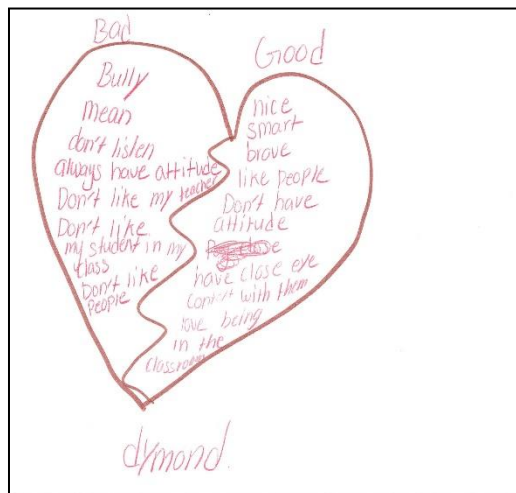 Bad
Bully
mean
don't listen
always have attitude
Don't like my teacher
Don't like
my student in my
class
Don't like
people
Good
nice
smart
brave
like people
Don't have
attitude
have close eye
with them
love being
in the
classroom
dymond.